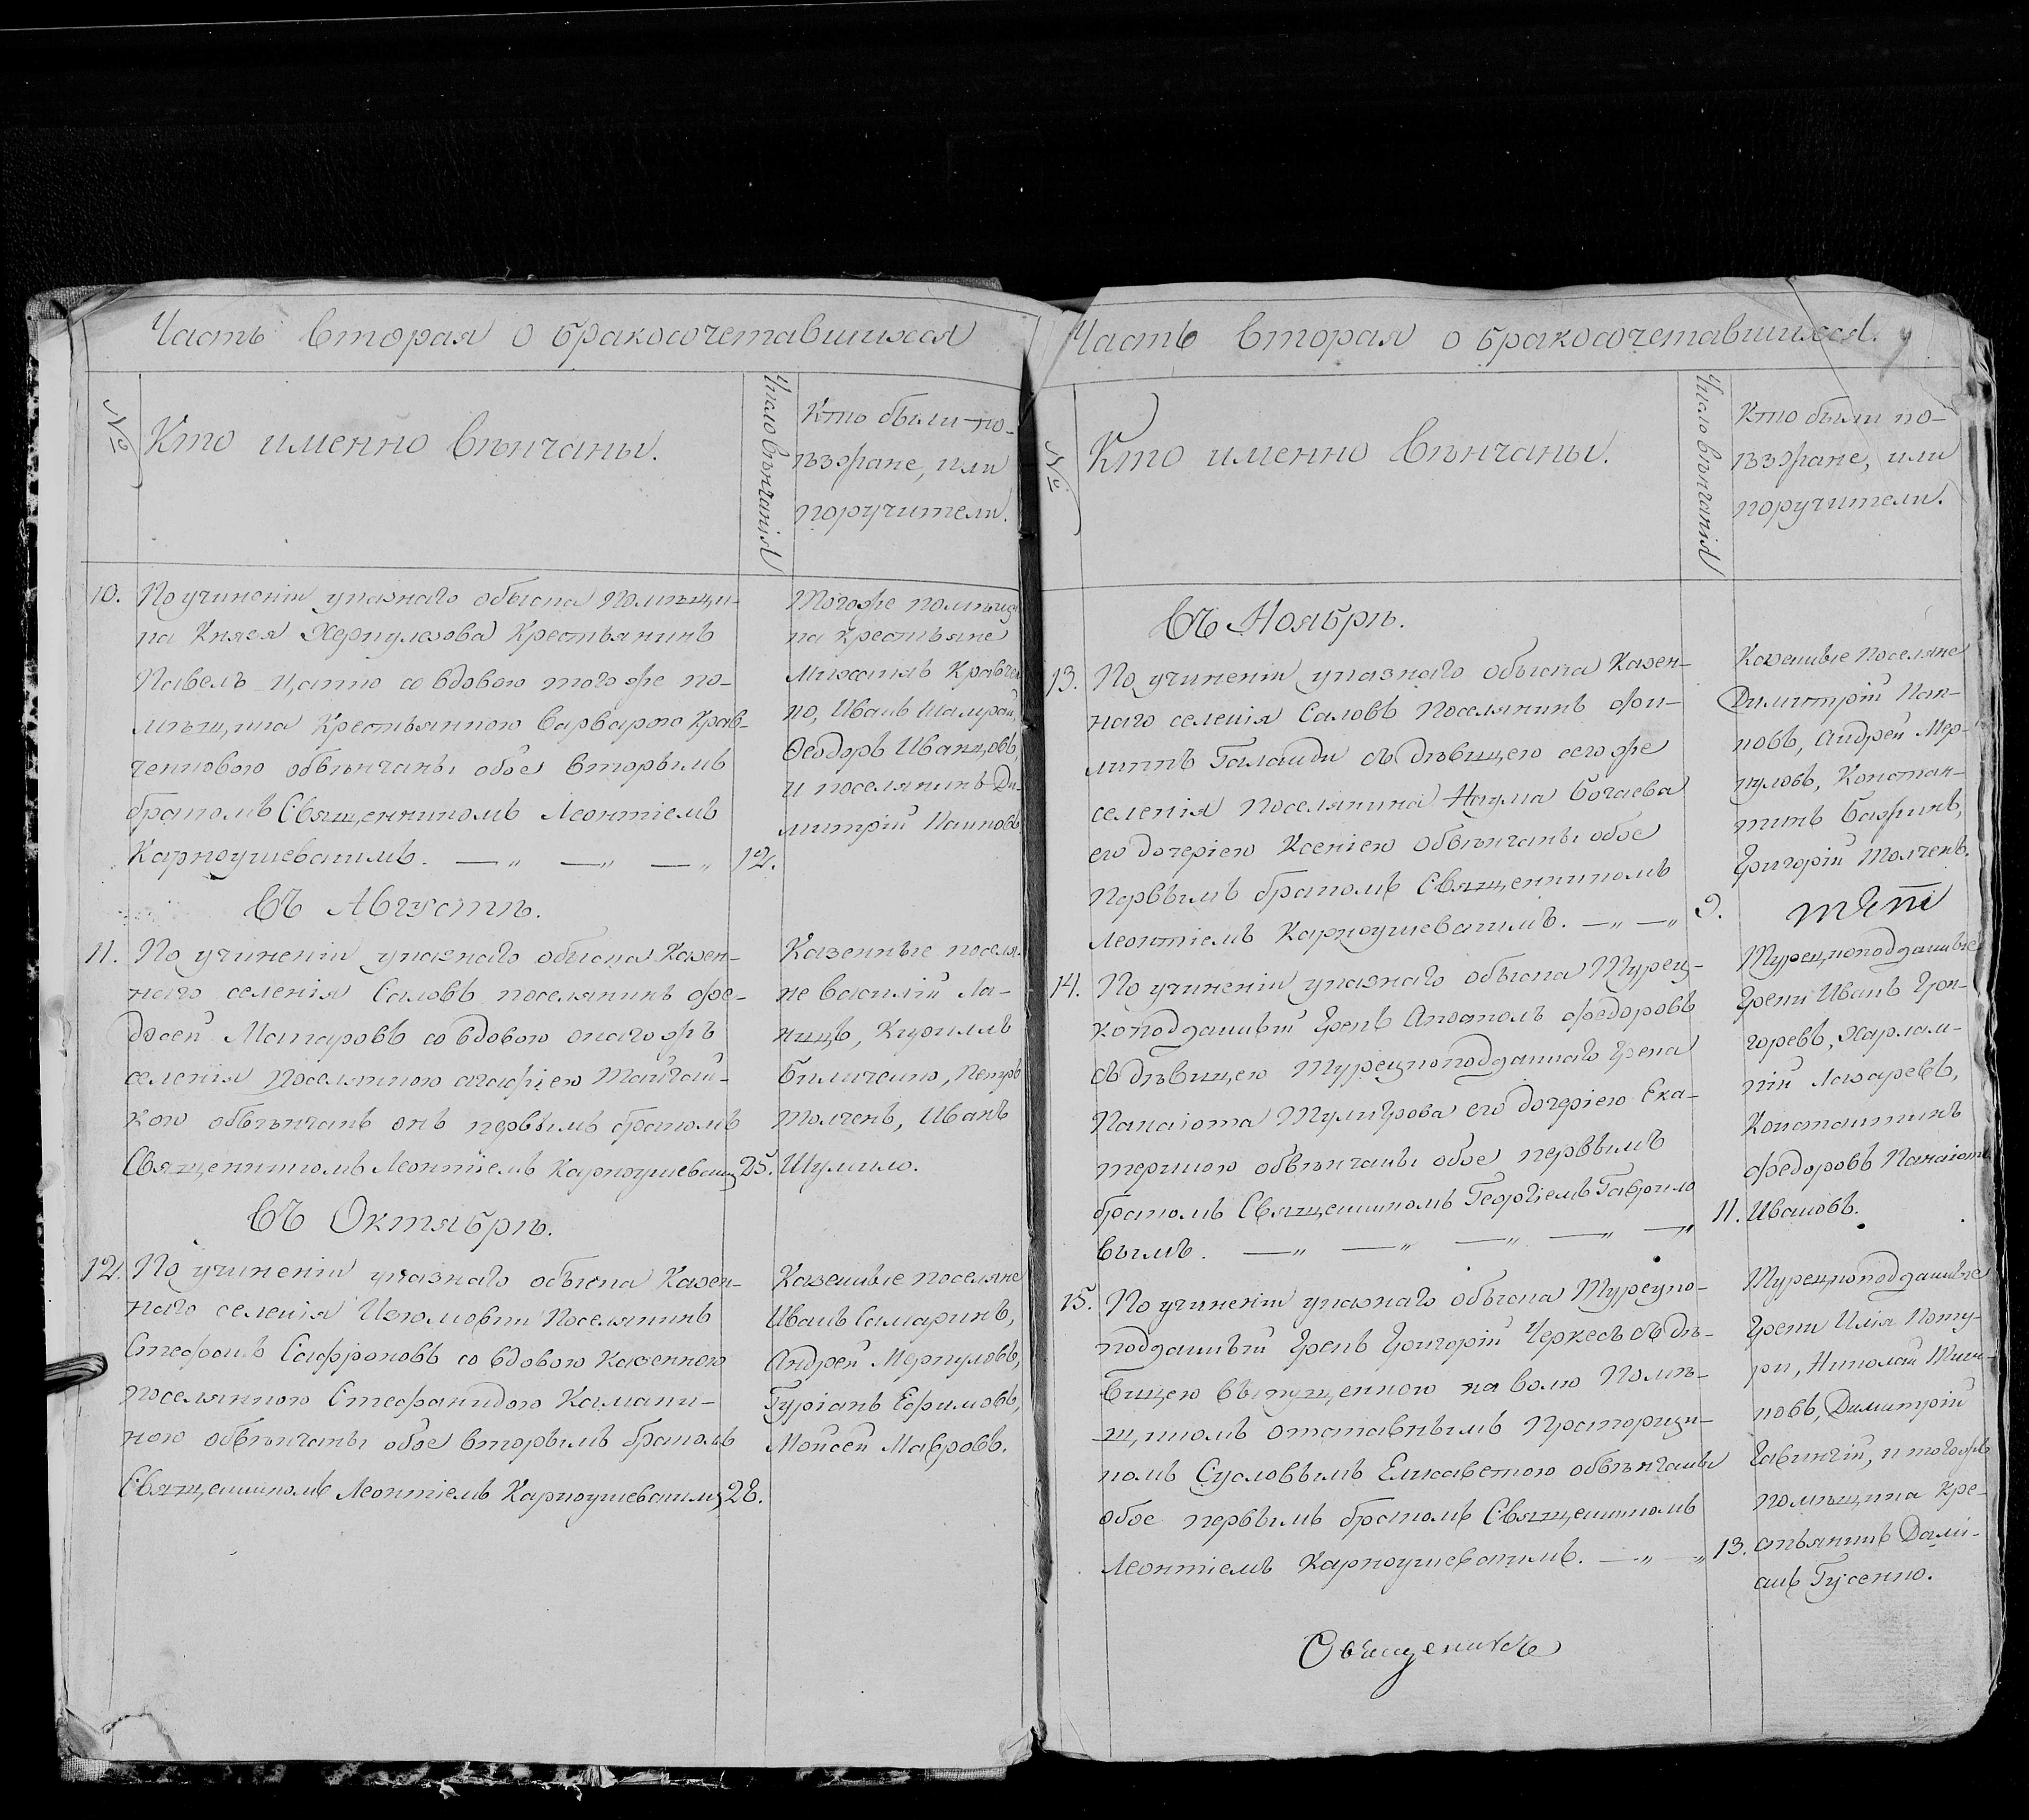 Часть вторая о бракосочетавшихся
№
Кто именно вѣнчаны.
Число вѣнчанія
Кто были по-
ѣзжане, или
поручители.
10. По учиненіи указнаго обыска помѣщи-
ка Князя Херхулезова Крестьянинъ
Павелъ Цапко со вдовою того же по-
мѣщика Крестьянкою Варварою Крав-
ченковою обвѣнчаны обое вторымъ
бракомъ Священникомъ Леонтіемъ
Карноушевскимъ. 12.
Тогоже помѣщи
ка крестьяне
Михаилъ Кравчен
ко, Иванъ Шамрай,
Ѳеодоръ Иванцовъ,
и поселянинъ Ди-
митрій Панковъ
Въ Августѣ.
11. По учиненіи указнаго обыска Казен-
наго селенія Саловъ поселянинъ Фе-
досей Матаровъ со вдовою онаго жъ
селенія поселянкою агафіею
кою обвѣнчанъ онъ первымъ бракомъ
Священникомъ Леонтіемъ Карноушевским 25.
Казенные поселя
не василій Ла-
Кирилъ
Биличенко, Петръ
Толченъ, Иванъ
Шумило.
Въ Октябрѣ.
12. По учиненіи указнаго обыска Казен-
наго селенія Изюмовки Поселянинъ
Стефанъ Сафроновъ со вдовою казенною
поселянкою Стефанидою Камани-
ною обвѣнчаны обое вторымъ бракомъ
Священникомъ Леонтіемъ Карноушевским 28.
Казенные поселяне
Иванъ Самаринъ,
Андрей Меркуловъ,
Гуріанъ Ефимовъ,
Моисей Мавровъ.
Часть вторая о бракосочетавшихся.
№
Кто именно вѣнчаны.
Число вѣнчанія
Кто были по-
ѣзжане, или
поручители.
Въ Ноябрѣ.
13. По учиненіи указнаго обыска Казен-
наго селенія Саловъ Поселянинъ Фи-
липпъ Галанди съ дѣвицею сего же
селенія поселянина Наума Богаева
его дочеріею Ксеніею обвѣнчаны обое
Первымъ бракомъ Священникомъ
Леонтіемъ Карноушевскимъ. 9.
Казенные Поселяне
Димитрій Пан-
ковъ, Андрей Мер-
куловъ, Констан-
тинъ Бажинъ,
Григорій Толченъ.
14. По учиненіи указнаго обыска Турец-
коподданный Грекъ Апостолъ Федоровъ
съ дѣвицею Турецкоподданнаго Грека
Панаіота его дочеріею Ека-
териною обвѣнчаны обое первымъ
бракомъ Священникомъ Георгіемъ Гаврило
вымъ. 11.
Турецкоподданные
Греки Иванъ Гри-
горевъ, Харлам-
пій Лазаревъ,
Константинъ
Федоровъ Панаіотъ
Ивановъ.
15. По учиненіи указнаго обыска Турецко-
подданный Грекъ Григорій Черкесъ съ дѣ-
вицею выпущенною на волю Помѣ-
щикомъ отставнымъ Прапорщи-
комъ Сусловымъ Елисаветою обвѣнчаны
обое первымъ бракомъ Священникомъ
Леонтіемъ Карноушевскимъ. 13.
Турецкоподданные
Греки Илія Поту-
ри, Николай
ковъ, Димитрій
и тогожъ
помѣщика Кре-
стьянинъ Демі-
анъ Гусенко.
Священикъ